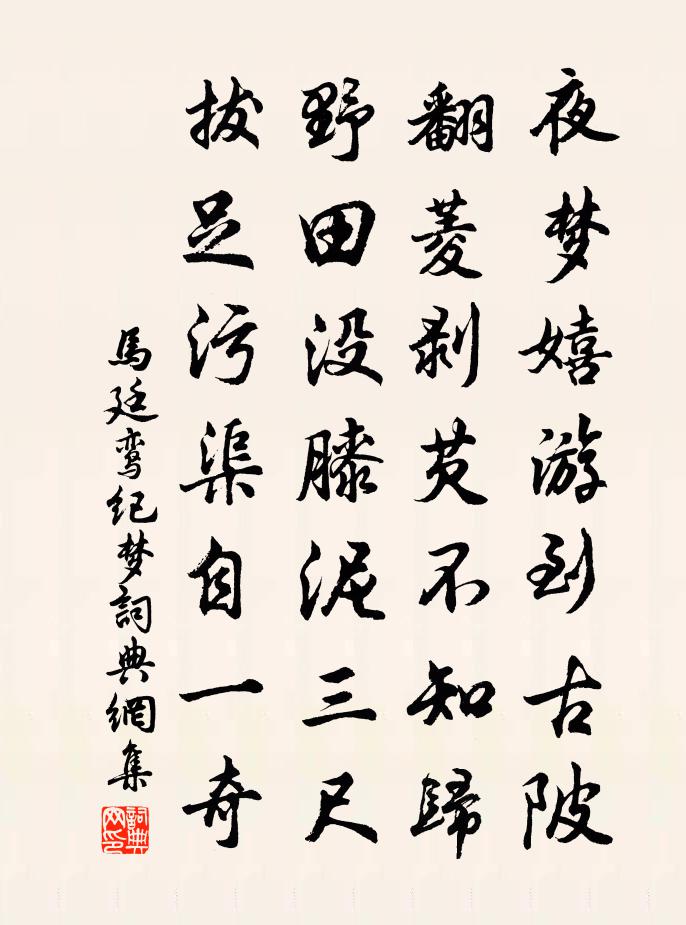 夜梦嬉游到古陂
翻菱剥芡不知歸
野田没膝泥三尺
拔足污渠自一奇
馬廷鸾纪梦詞典網集
詞典网印